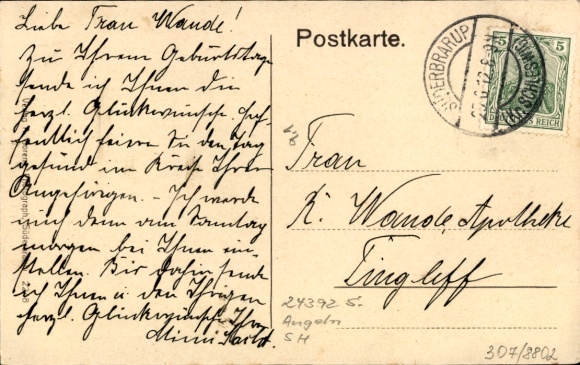 Liebe Frau Wande!
Zu Ihrem Geburtstage
sende ich Ihnen die
herzl. Glückwünsche. Hof-
fentlich feiern Sie den Tag
gesund im Kreise Ihrer
Angehörigen. – Ich werde
mich dann am Sonntag
morgen bei Ihnen ein-
stellen. Bis dahin sende
ich Ihnen u. den Ihrigen
herzl. Glückwünsche. Ihre
Mimi
Postkarte.
SÜDERBRARUP
(SCHLESWIG)
5 5
DEUTSCHES REICH
An
Frau
K. Wande, Apotheke
Tingleff
24392 S.
Angeln
SH
307/8802